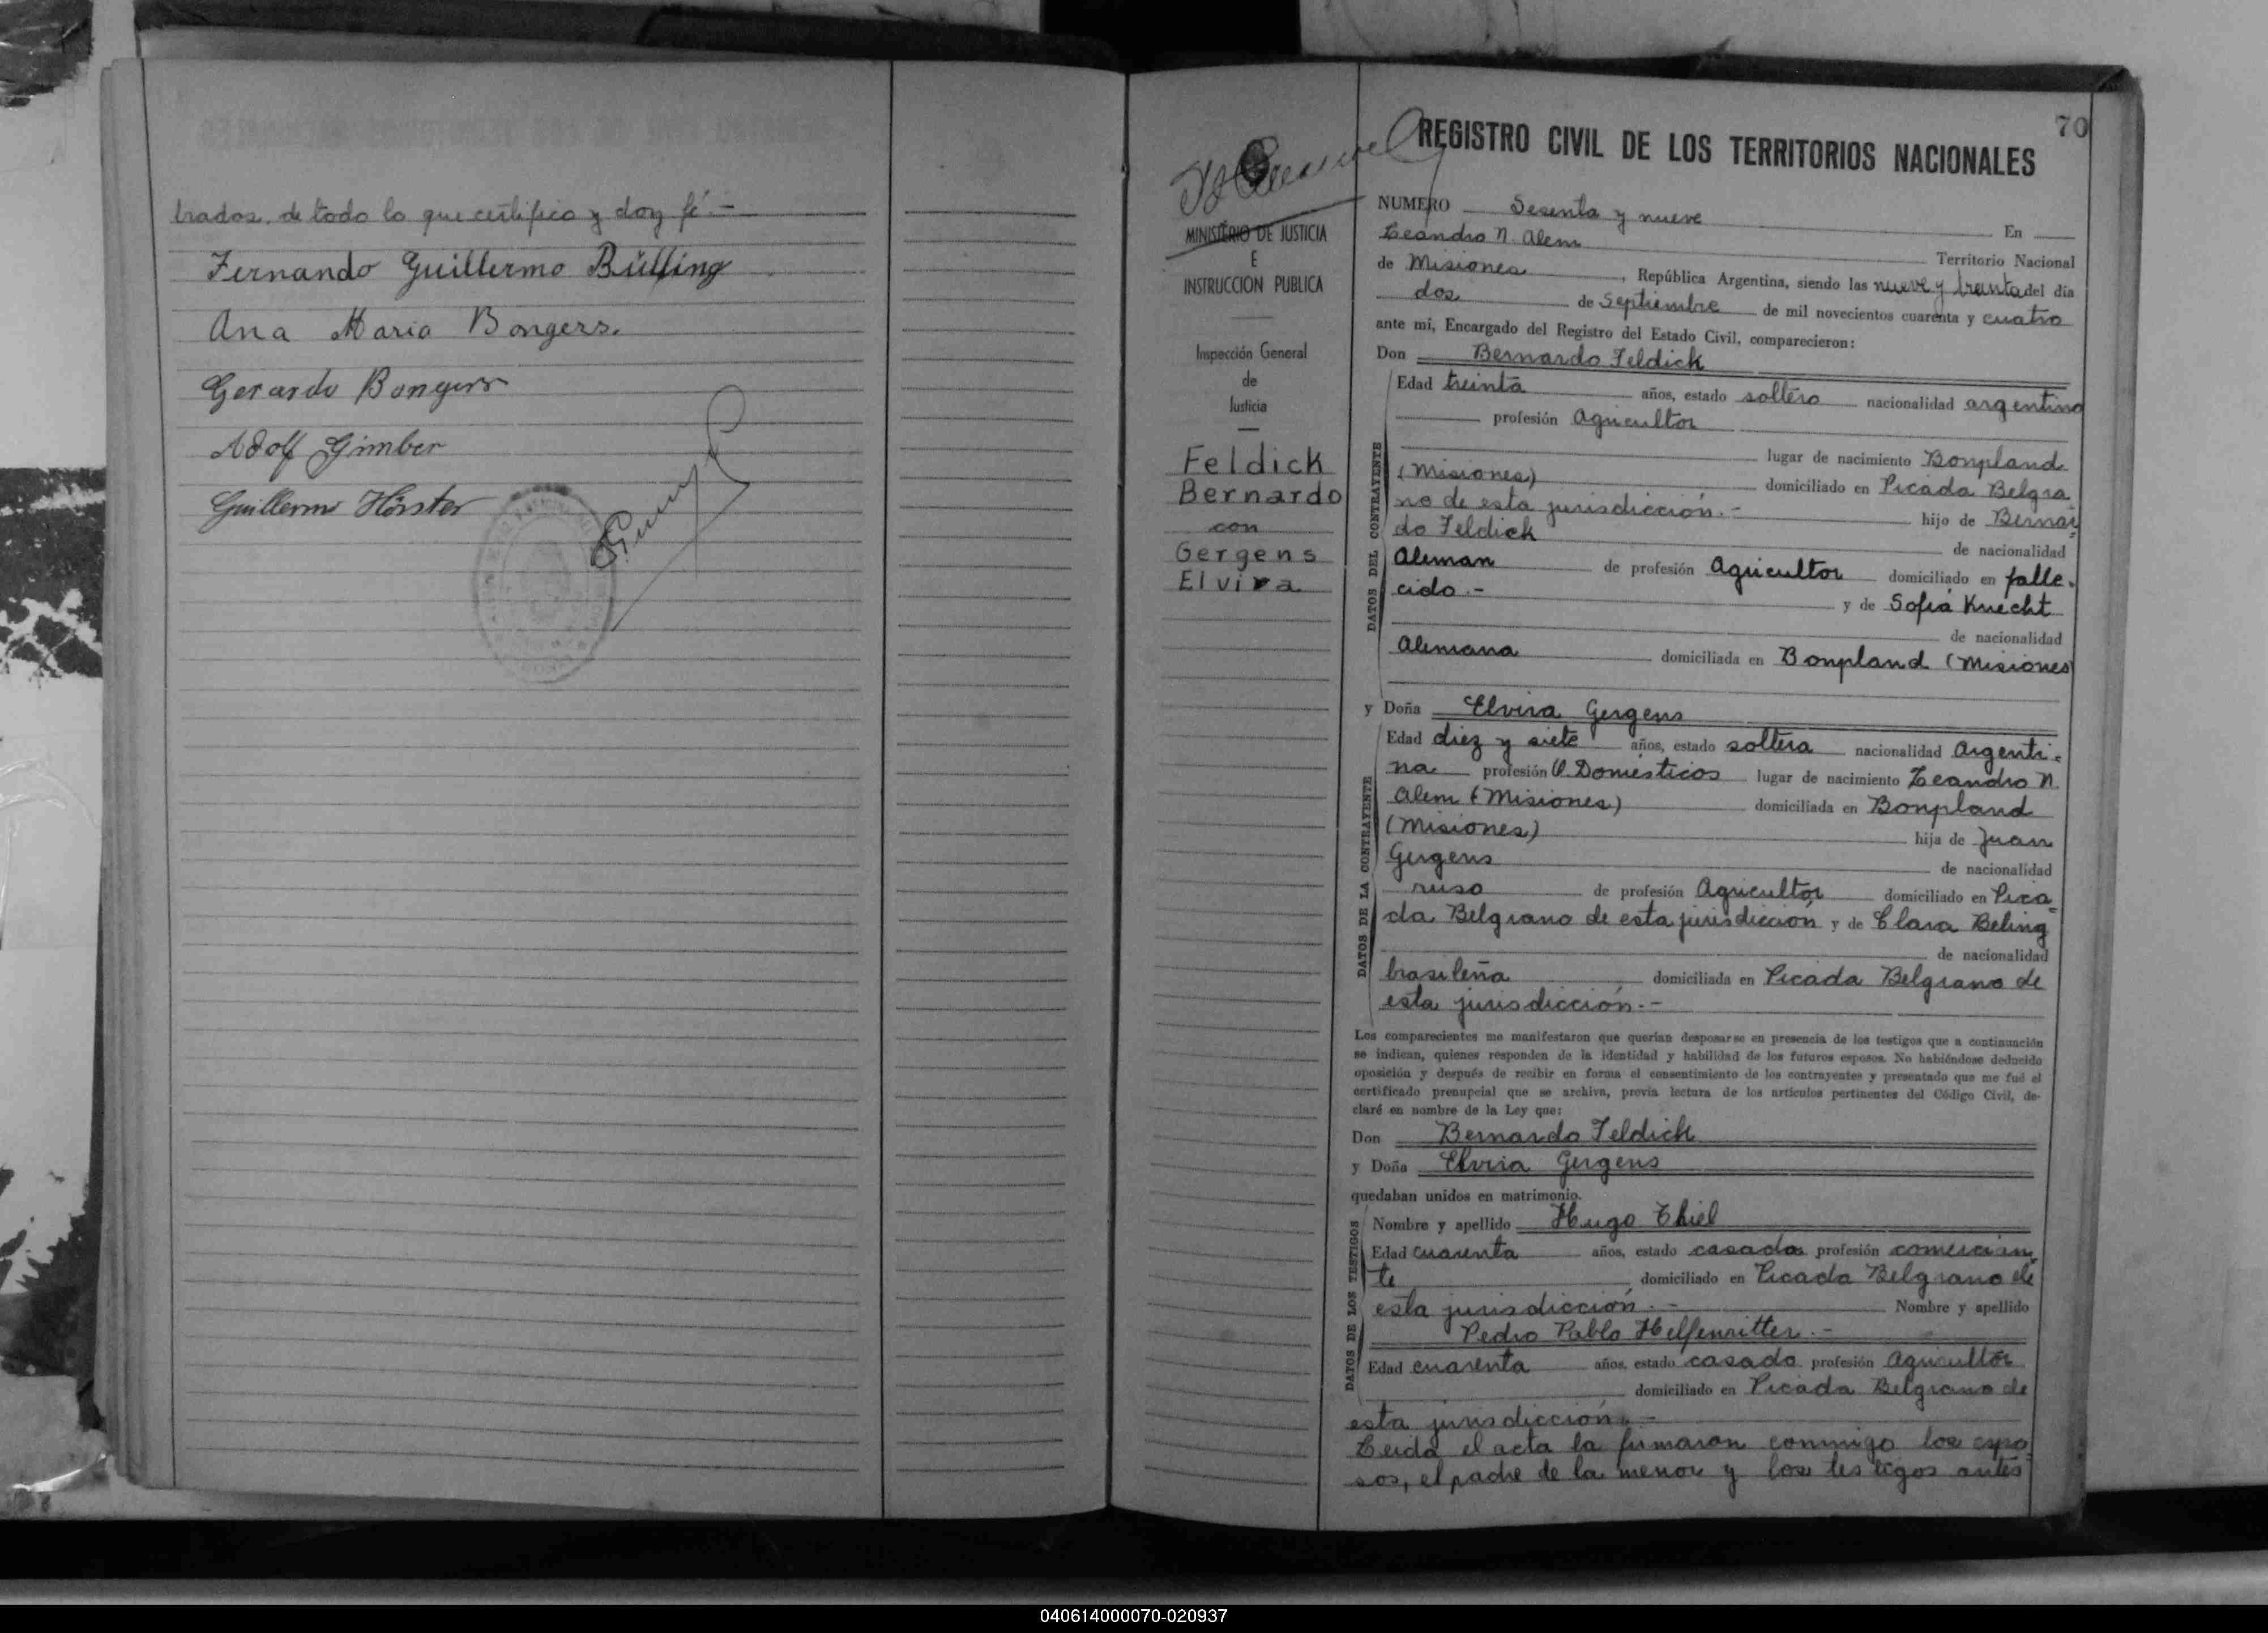 trados, de todo lo que certifico y doy fé.-
Fernando Guillermo Bülfing
Ana Maria Bongers.
Gerardo Bongers
Adolf Gimber
Guillermo Hörster
70
REGISTRO CIVIL DE LOS TERRITORIOS NACIONALES
MINISTERIO DE JUSTICIA
E
INSTRUCCION PUBLICA
Inspección General
de
Justicia
Feldick
Bernardo
con
Gergens
Elvira
NUMERO Sesenta y nueve En
Leandro N. Alem Territorio Nacional
de Misiones, República Argentina, siendo las nueve y treinta del día
dos de Septiembre de mil novecientos cuarenta y cuatro
ante mi, Encargado del Registro del Estado Civil, comparecieron:
Don Bernardo Feldick
DATOS DEL CONTRAYENTE
Edad treinta años, estado soltero nacionalidad argentino
profesión Agricultor
lugar de nacimiento Bonpland
(Misiones) domiciliado en Picada Belgra
no de esta jurisdicción.- hijo de Bernar
do Feldick de nacionalidad
Aleman de profesión Agricultor domiciliado en falle-
cido.- y de Sofia Knecht
de nacionalidad
Alemana domiciliada en Bonpland (Misiones)
y Doña Elvira Gergens
DATOS DE LA CONTRAYENTE
Edad diez y siete años, estado soltera nacionalidad Argenti-
na profesión Q. Domésticos lugar de nacimiento Leandro N.
Alem (Misiones) domiciliada en Bonpland
(Misiones) hija de Juan
Gergens de nacionalidad
ruso de profesión Agricultor domiciliado en Pica-
da Belgrano de esta jurisdicción y de Clara Beling
de nacionalidad
brasileña domiciliada en Picada Belgrano de
esta jurisdicción.-
Los comparecientes me manifestaron que querían desposarse en presencia de los testigos que a continuación
se indican, quienes responden de la identidad y habilidad de los futuros esposos. No habiéndose deducido
oposición y después de recibir en forma el consentimiento de los contrayentes y presentado que me fué el
certificado prenupcial que se archiva, previa lectura de los artículos pertinentes del Código Civil, de-
claré en nombre de la Ley que:
Don Bernardo Feldick
y Doña Elvira Gergens
quedaban unidos en matrimonio.
DATOS DE LOS TESTIGOS
Nombre y apellido Hugo Thiel
Edad cuarenta años, estado casado profesión comercian-
te domiciliado en Picada Belgrano de
esta jurisdicción.- Nombre y apellido
Pedro Pablo Helfenritter.-
Edad cuarenta años, estado casado profesión Agricultor
domiciliado en Picada Belgrano de
esta jurisdicción.-
Leida el acta la firmaron conmigo los espo-
sos, el padre de la menor y los testigos antes
040614000070-020937